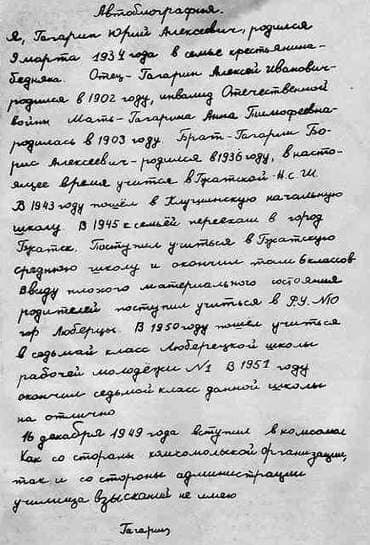 Автобиография.
Я, Гагарин Юрий Алексеевич, родился
9 марта 1934 года в семье крестьянина-
бедняка. Отец - Гагарин Алексей Иванович -
родился в 1902 году, инвалид Отечественной
войны Мать - Гагарина Анна Тимофеевна -
родилась в 1903 году. Брат - Гагарин Бо-
рис Алексеевич - родился в 1936 году, в насто-
ящее время учится в Гжатской Н.С.Ш.
В 1943 году пошёл в Клушинскую начальную
школу В 1945 с семьёй переехал в город
Гжатск. Поступил учиться в Гжатскую
среднюю школу и окончил там 6 классов
Ввиду плохого материального состояния
родителей поступил учиться в Р.У. №10
гор Люберцы. В 1950 году пошёл учиться
в седьмой класс Люберецкой школы
рабочей молодёжи №1 В 1951 году
окончил седьмой класс данной школы
на отлично
16 декабря 1949 года вступил в комсомол
Как со стороны комсомольской организации,
так и со стороны администрации
училища взысканий не имею
Гагарин